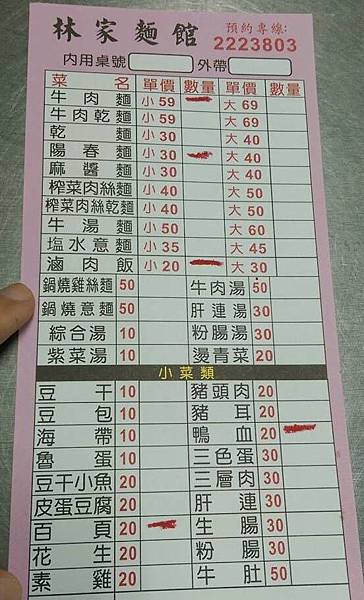 林家麵館 預約專線:
2223803
內用桌號 外帶
菜名 單價 數量 單價 數量
牛肉麵 小59 大69
牛肉乾麵 小59 大69
乾麵 小30 大40
陽春麵 小30 大40
麻醬麵 小30 大40
榨菜肉絲麵 小40 大50
榨菜肉絲乾麵 小40 大50
牛湯麵 小50 大60
塩水意麵 小35 大45
滷肉飯 小20 大30
鍋燒雞絲麵 50 牛肉湯 50
鍋燒意麵 50 肝連湯 30
綜合湯 10 粉腸湯 30
紫菜湯 10 燙青菜 20
小菜類
豆干 10 豬頭肉 20
豆包 10 豬耳 20
海帶 10 鴨血 20
魯蛋 10 三色蛋 30
豆干小魚 20 三層肉 30
皮蛋豆腐 20 肝連 30
百頁 20 生腸 30
花生 20 粉腸 30
素雞 20 牛肚 50